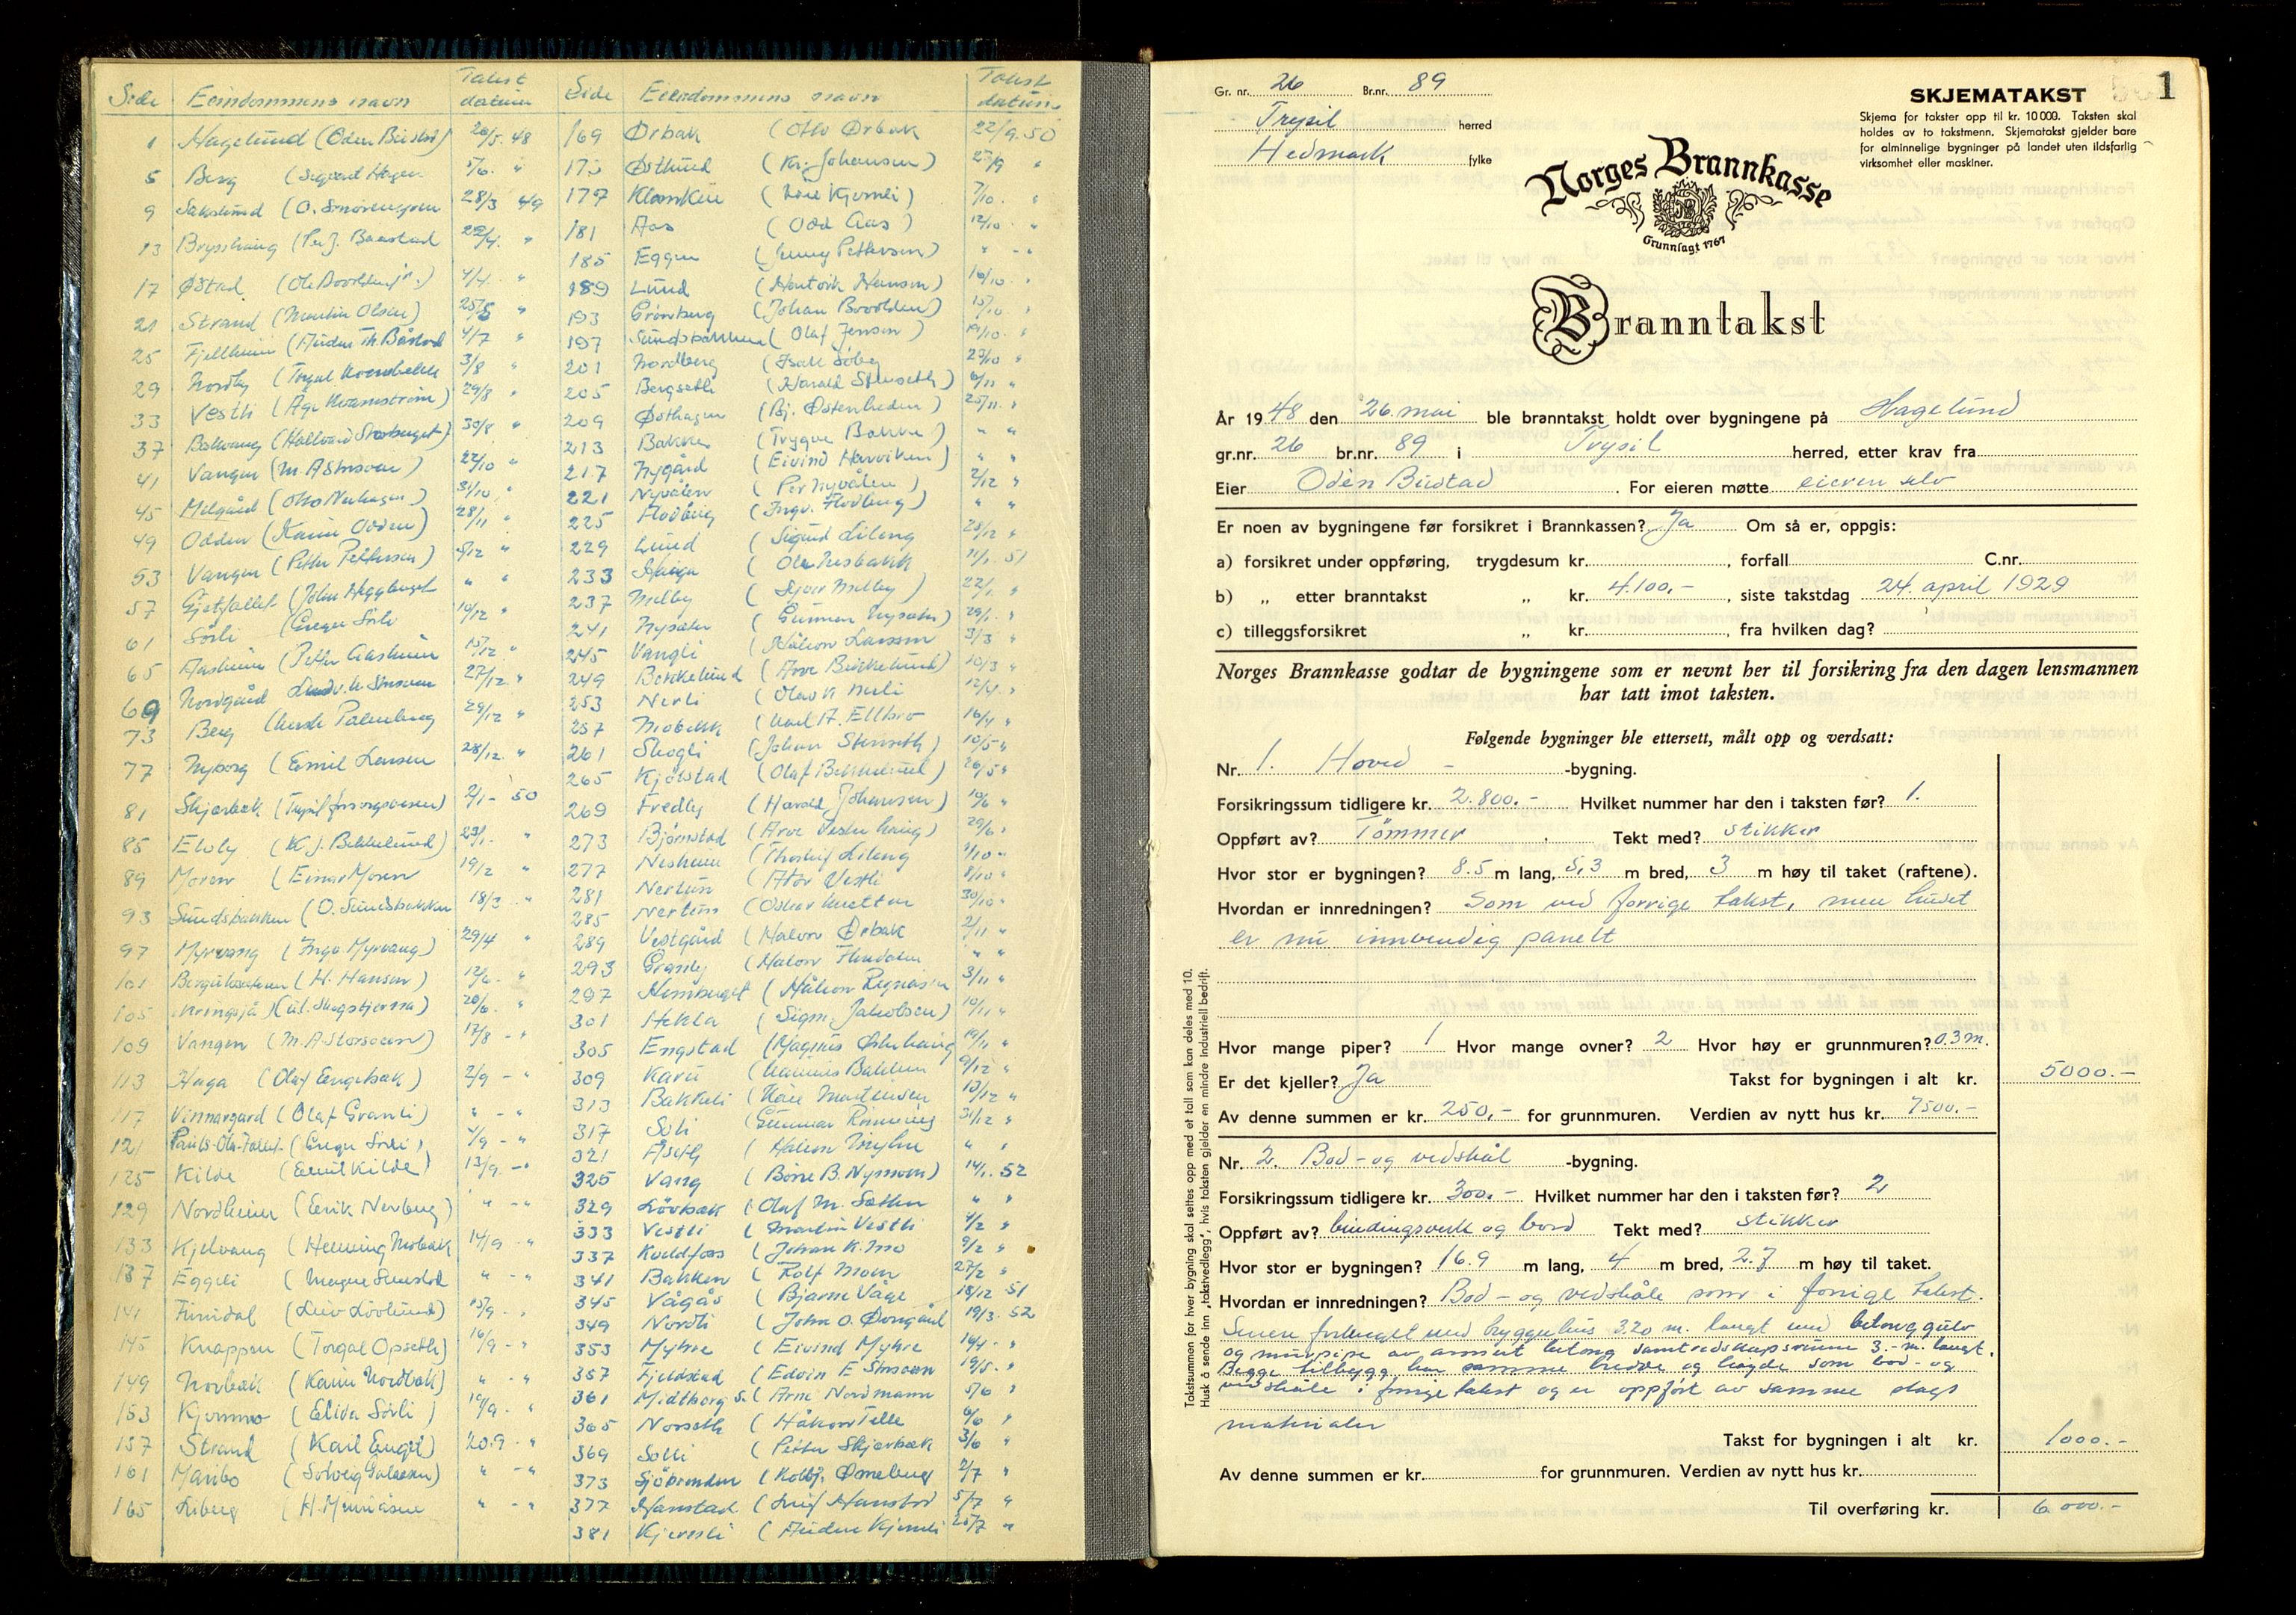 Side Eiendommens navn Takst datum
1 Hagelund (Oden Bustad) 26/5. 48
5 Berg (Sigvart Hagen 5/6. "
9 Sakslund (O. 28/3 49
13 Brysshaug (Per J. Baastad 22/4. "
17 Østad (Ole Borolden jr.) 4/4. "
21 Strand (Martin Olsen) 25/5 "
25 Fjellheim (Anders Th. Båstad 4/7 "
29 Nordby (Torgal 3/8 "
33 Vestli (Åge Kvarnström) 29/8 "
37 (Hallvard 30/8 "
41 Vangen (M. A. Storsveen) 22/10 "
45 Midgård (Otto Nerhagen) 31/10 "
49 Odden (Karin Odden) 28/11 "
53 Vangen (Petter Pettersen) 5/12 "
57 (John Heggberget " "
61 Sörli (Gregu Sörli 10/12 "
65 Aasheim (Petter Aasheim 15/12 "
69 Nordgård 27/12. "
73 Berg 29/12 "
77 Nyborg (Emil Larsen 28/12. "
81 Skjærbæk (Trysil forsorgsvesen) 2/1 - 50
85 Ekoly (K. J. Bekkelund) 23/1. "
89 Moren (Einar Moren 19/2 "
93 Sundsbakken (O. Sundsbakken 18/3 "
97 Myrvang (Inga Myrvang) 29/4 "
101 (H. Hansen) 12/6. "
105 Kringsjå 20/6. "
109 Vangen (M. A. Storsveen) 17/8 - "
113 Haga (Olaf Engebak) 2/9 - "
117 Vinmargard (Olaf Granli) " - "
121 4/9 - "
125 Kilde (Emil Kilde) 13/9. - "
129 Nordheim (Erik Nerberg) " - "
133 Kjelvang (Henning Mobæk 14/9 - "
137 Eggeli " - "
141 Furudal (Leiv Lövlund) 15/9 - "
145 Knappen (Torgal Opseth) 16/9 - "
149 Norbak (Karin Nordbak) " - "
153 Kjermmo (Elida Sörli) 19/9 - "
157 Strand (Karl Enget) 20.9 - "
161 Maribo (Solveig Galaasen) " - "
165 Liberg " - "
Side Eiendommens navn Takst datum
169 Ørbak (Otto Ørbak 22/9. 50
173 Østlund (Kr. Johansen) 27/9 "
177 (Kåre Kjernli) 7/10. "
181 Aas (Odd Aas) 12/10 "
185 Eggen (Jenny Pettersen) " - "
189 Lund (Hartvik Hansen) 16/10 "
193 Grönberg (Johan Borolden) 15/10 "
197 Sundsbakken (Olaf Jensen) 19/10 "
201 Nordberg (Isak Söby 27/10 "
205 Bergseth (Harald Stenseth) 6/11 "
209 Østhagen (Bj. Østenheden) 25/11. "
213 Bakken (Trygve Bakke) " "
217 Nygård (Eivind Hanviken) " "
221 Nyvålen (Per Nyvålen) 2/12 "
225 Flodberg (Ingv. Flodberg) " "
229 Lund (Sigurd Lileng 28/12 "
233 Haugen (Ole Nesbakk 11/1. 51
237 Melby (Syver Melby) 22/1. "
241 Nysæter (Gunnar Nysæter) 29/1. "
245 Vangli (Håkon Larssen 3/3 "
249 Bekkelund (Arve Bekkelund) 10/3 "
253 Nerli (Olav K Nerli 12/4. "
257 Mobekk (Karl A. Ellbro 16/4 "
261 Skogli (Johan Stenseth) 10/5 "
265 Kjölstad (Olaf Bekkelund) 26/5 "
269 Fredly (Harald Johansen) 19/6 "
273 Björnstad (Arve Vesterhaug) 29/6 "
277 Nesheim (Thorleif Lileng 1/10 -
281 Nertun (Ator Vestli 8/10 "
285 Nertun (Oskar Mættun 30/10 "
289 Vestgård (Halvor Ørbak 2/11 "
293 Granly (Halvor Flendalen " "
297 (Håkon 3/11 "
301 Hekla (Sigm. Jakobsen) 10/11 "
305 Engstad (Magnus Østerhaug 19/11 "
309 Karu (Hannes Bakken 9/12 "
313 Bakkeli (Kåre Martinsen 10/12 "
317 Soli (Gunnar Rönning 31/12 "
321 Åseth (Halvor Myhre " "
325 Vang (Börre B. Nymoen) 14/1. 52
329 Lövbæk (Olaf M. Sætten " "
333 Vestli (Martin Vestli 4/2 "
337 Kveldfoss (Johan K. Mo 9/2 "
341 Bakken (Rolf Moen 27/2 "
345 Vågås (Bjarne Våge 18/12 51
349 Nordli (John O. Dovgård 19/3 52
353 Myhre (Eivind Myhre 19/4 - "
357 Fjeldstad (Edvin E Storsveen 19/5. "
361 Midtberg S. (Arne Nordmann 5/6 "
365 Norseth (Håkon Telle 6/6 "
369 Solli (Petter Skjærbæk 3/6 "
373 Sjöbrenden (Kolbj. Örneberg 2/7 "
377 Hanstad (Leif Hanstad 5/7 "
381 Kjernli (Anders Kjernli 25/7 "
1
Gr. nr. 26 Br.nr. 89
Trysil herred
Hedmark fylke
SKJEMATAKST
Skjema for takster opp til kr. 10 000. Taksten skal
holdes av to takstmenn. Skjematakst gjelder bare
for alminnelige bygninger på landet uten ildsfarlig
virksomhet eller maskiner.
Norges Brannkasse
Grunnlagt 1767
Branntakst
År 1948 den 26. mai ble branntakst holdt over bygningene på Hagelund
gr.nr. 26 br.nr. 89 i Trysil herred, etter krav fra
Eier Odén Bustad. For eieren møtte eieren selv
Er noen av bygningene før forsikret i Brannkassen? Ja Om så er, oppgis:
a) forsikret under oppføring, trygdesum kr. , forfall C.nr.
b) „ etter branntakst „ kr. 4.100,- , siste takstdag 24. april 1929
c) tilleggsforsikret „ kr. , fra hvilken dag?
Norges Brannkasse godtar de bygningene som er nevnt her til forsikring fra den dagen lensmannen
har tatt imot taksten.
Følgende bygninger ble ettersett, målt opp og verdsatt:
Nr. 1. Hoved - -bygning.
Forsikringssum tidligere kr. 2.800.- Hvilket nummer har den i taksten før? 1.
Oppført av? Tömmer . Tekt med? stikker
Hvor stor er bygningen? 8.5 m lang, 5,3 m bred, 3 m høy til taket (raftene).
Hvordan er innredningen? Som ved forrige takst, men huset
er nu innvendig panelt
Hvor mange piper? 1 Hvor mange ovner? 2 Hvor høy er grunnmuren? 0.3 m.
Er det kjeller? Ja Takst for bygningen i alt kr. 5000.-
Av denne summen er kr. 250,- for grunnmuren. Verdien av nytt hus kr. 7500.-
Nr. 2. Bod- og vedskål -bygning.
Forsikringssum tidligere kr. 300.- Hvilket nummer har den i taksten før? 2
Oppført av? bindingsverk og bord Tekt med? stikker
Hvor stor er bygningen? 16.9 m lang, 4 m bred, 2.7 m høy til taket.
Hvordan er innredningen? Bod- og vedskåle som i forrige takst.
Senere forlenget med bryggehus 3.20 m. langt med betonggulv
og murpipe av armert betong samt redskapsrumme 3.- m. langt.
Begge tilbygg har samme bredde og høyde som bod- og
vedskåle i forrige takst og er oppført av samme slags
materialer
Takst for bygningen i alt kr. 1000.-
Av denne summen er kr. for grunnmuren. Verdien av nytt hus kr.
Til overføring kr. 6000.-
Takstsummen for hver bygning skal settes opp med et tall som kan deles med 10.
Husk å sende inn „takstvedlegg", hvis taksten gjelder en mindre industriell bedrift.